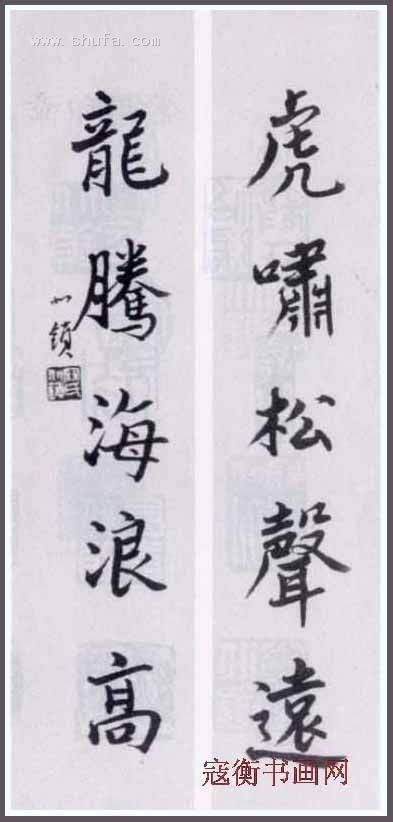 虎嘯松聲遠
龍騰海浪高
www.shufa.com
寇衡书画网